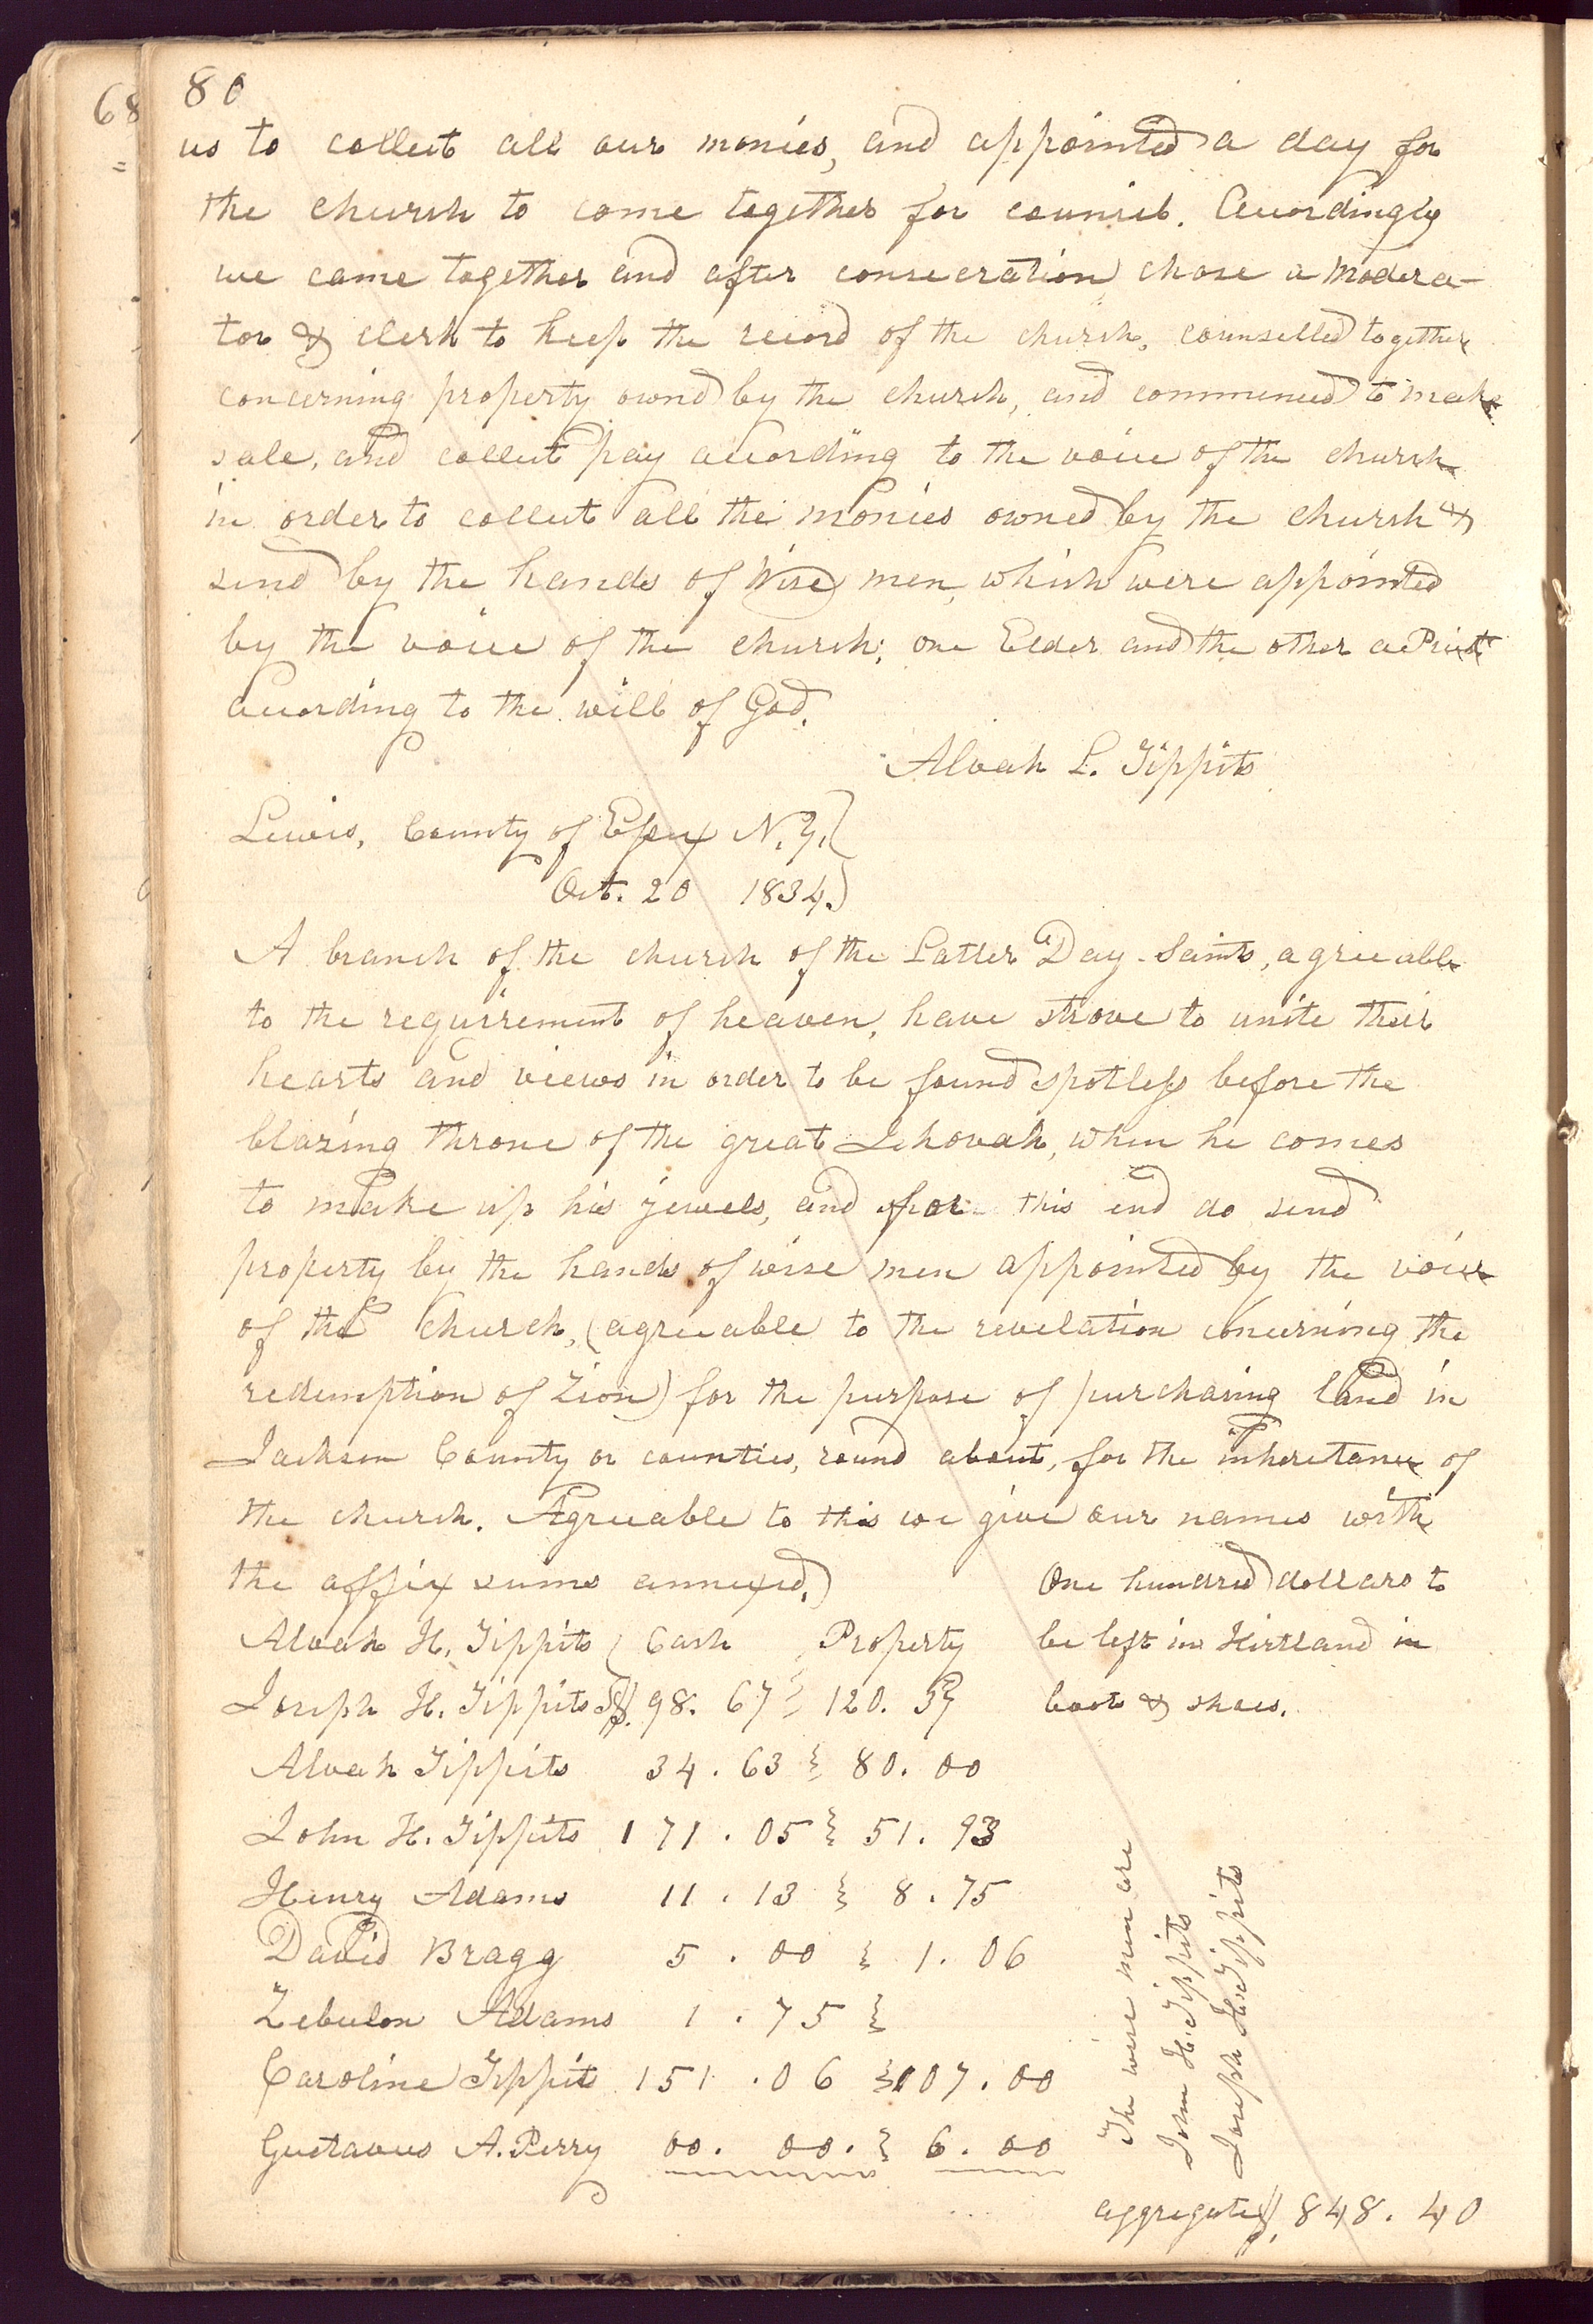 68
80
us to collect all our monies, and appointed a day for
the church to come together for council. Accordingly
we came together and after consecration chose a modera-
tor & clerk to keep the record of the church, counselled together
concerning property ownd by the church, and commenced to make
sale, and collect pay according to the voice of the church
in order to collect all the monies owned by the church &
send by the hands of Wise men, which were appointed
by the voice of the church; one Elder and the other a Priest
according to the will of God.
Alvah L. Tippits
Lewis, County of Essex N.Y.
Oct. 20 1834.
A branch of the church of the Latter Day Saints, agreeable
to the requirement of heaven, have strove to unite their
hearts and views in order to be found spotless before the
blazing throne of the great Jehovah, when he comes
to make up his jewels, and for this end do send
property by the hands of wise men appointed by the voice
of the church, (agreeable to the revelation concerning the
redemption of Zion) for the purpose of purchasing land in
Jackson County or counties, round about, for the inheritance of
the church. Agreeable to this we give our names with
the affix sums annexed.)
One hundred dollars to
be left in Kirtland in
boots & shoes.
Alvah H. Tippits Cash Property
Joseph H. Tippits $. 98. 67 120. 37
Alvah Tippits 34. 63 80. 00
John H. Tippits 171. 05 51. 93
Henry Adams 11. 13 8. 75
David Bragg 5. 00 1. 06
Zebulon Adams 1. 75
Caroline Tippits 151. 06 107. 00
Gustavus A. Perry 00. 00. 6. 00
The wise men are
John H. Tippits
Joseph H. Tippits
aggregate $. 848. 40